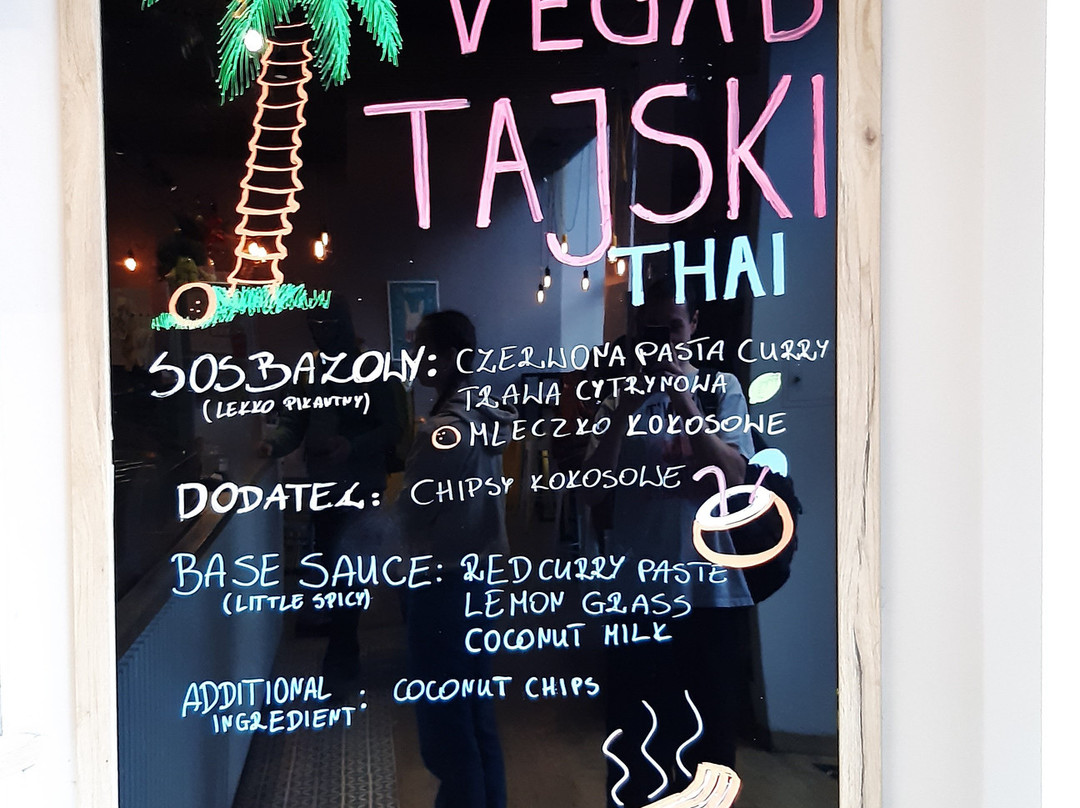 VEGAB
TAJSKI
THAI
SOS BAZOWY: CZERWONA PASTA CURRY
(LEKKO PIKANTNY) TRAWA CYTRYNOWA
MLECZKO KOKOSOWE
DODATEK: CHIPSY KOKOSOWE
BASE SAUCE: RED CURRY PASTE
(LITTLE SPICY) LEMON GRASS
COCONUT MILK
ADDITIONAL INGREDIENT: COCONUT CHIPS